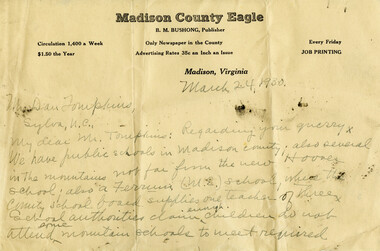 Madison County Eagle
B. M. BUSHONG, Publisher
Circulation 1,400 a Week
Only Newspaper in the County
Every Friday
$1.50 the Year
Advertising Rates 35c an Inch an Issue
JOB PRINTING
Madison, Virginia
March 24, 1930.
Mr. Dan Tompkins,
Sylva, N.C.
My dear Mr. Tompkins: Regarding your query,
We have public schools in Madison county, also several
in the mountains not far from the new Hoover
school; also a Ferrum (M.E.) school, where the
County School board supplies one teacher of three.
School authorities claim enough children do not
attend some mountain schools to meet required